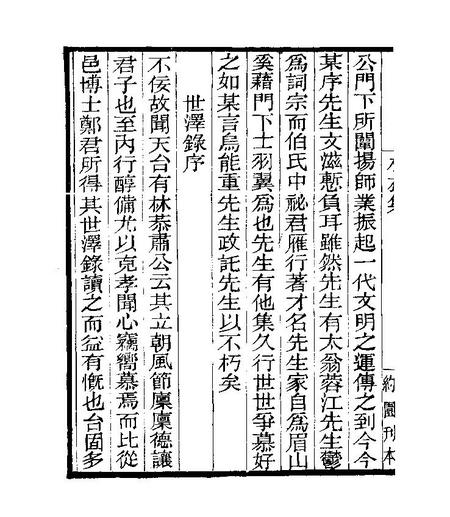 約園刊本
公門下所闡揚師業振起一代文明之運傳之到今今
某序先生文滋慙負耳雖然先生有太翁蓉江先生鬱
爲詞宗而伯氏中祕君雁行著才名先生家自爲眉山
奚藉門下士羽翼爲也先生有他集久行世世爭慕好
之如某言烏能重先生政託先生以不朽矣
世澤錄序
不佞故聞天台有林恭肅公云其立朝風節廩廩德讓
君子也至內行醇備尤以克孝聞心竊嚮慕焉而比從
邑博士鄭君所得其世澤錄讀之而益有慨也台固多